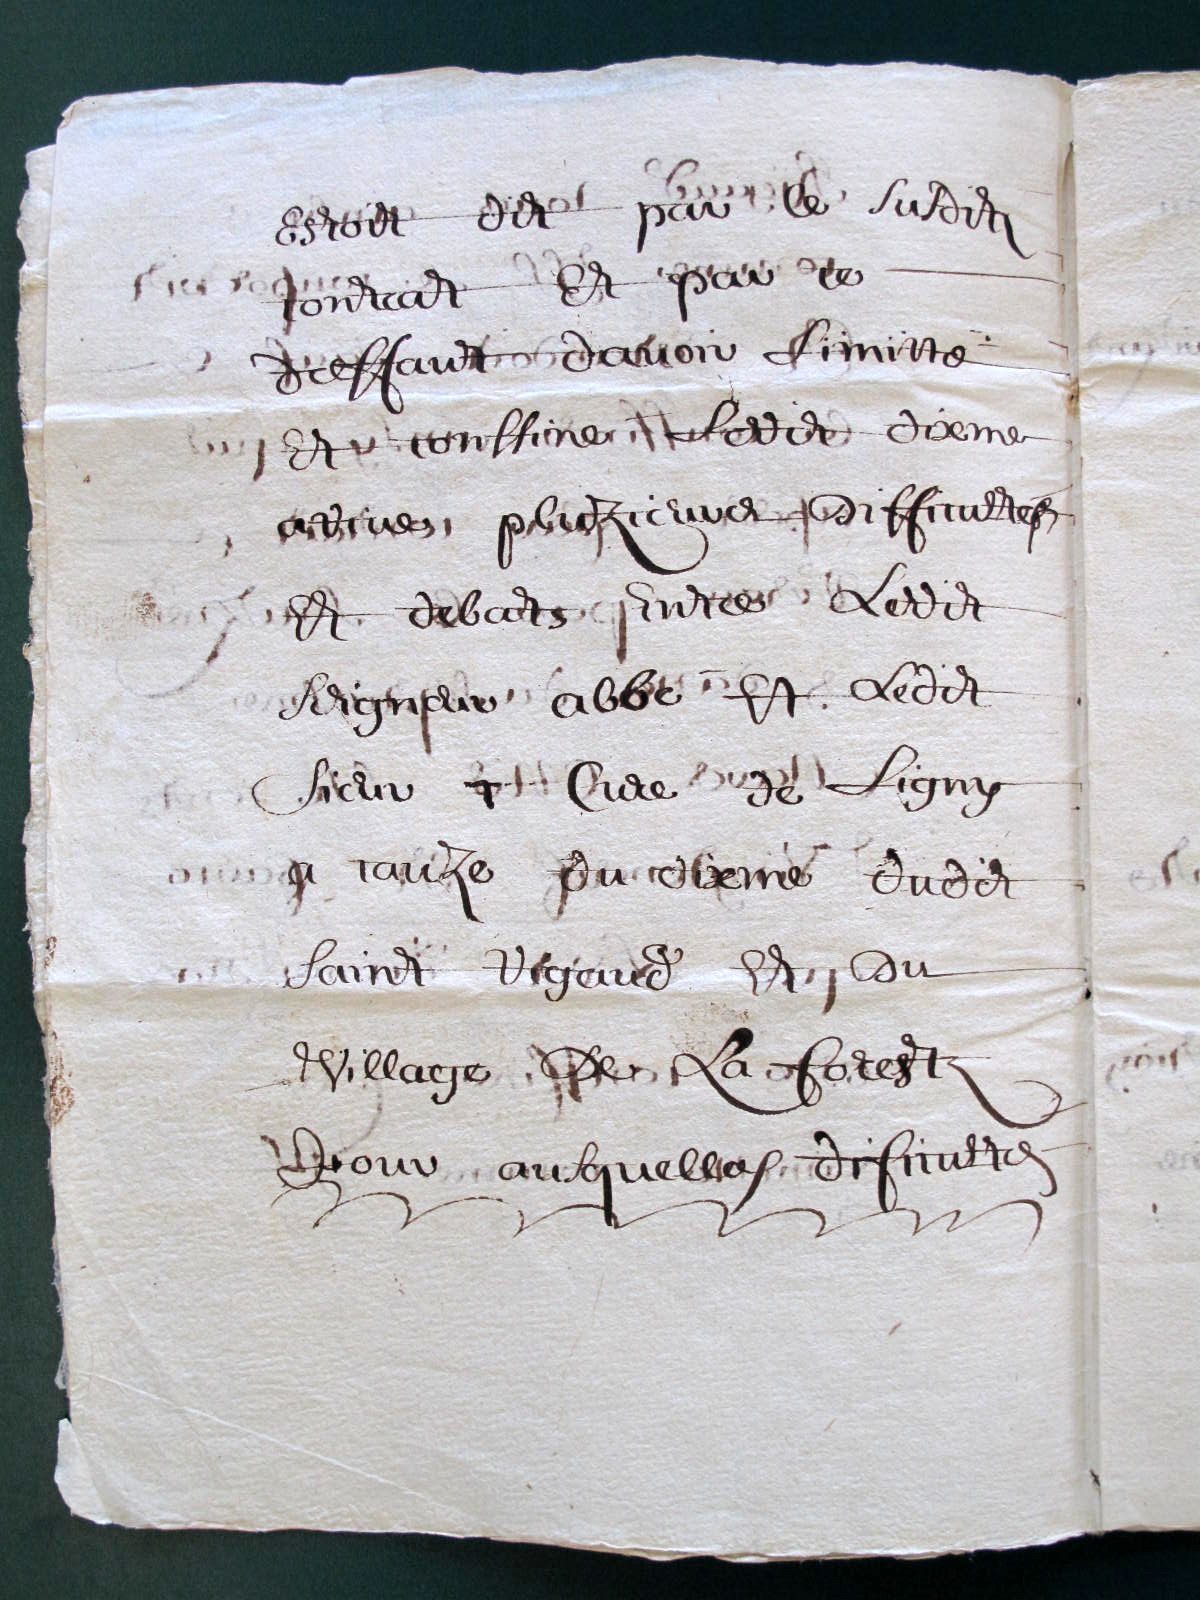 Estoit dit par le susdit
contract Et par ce
deffaut d'avoir Limitte
Et conffine Ledit dixme
arrives pluzieurs difficulttes
Et debats Entre Ledit
Seigneur abbe Et Ledit
Sieur Cure de Ligny
a cauze du dixme dudit
Saint Rigaud Et du
Village De La forestz
Pour ausquelles dificulttes